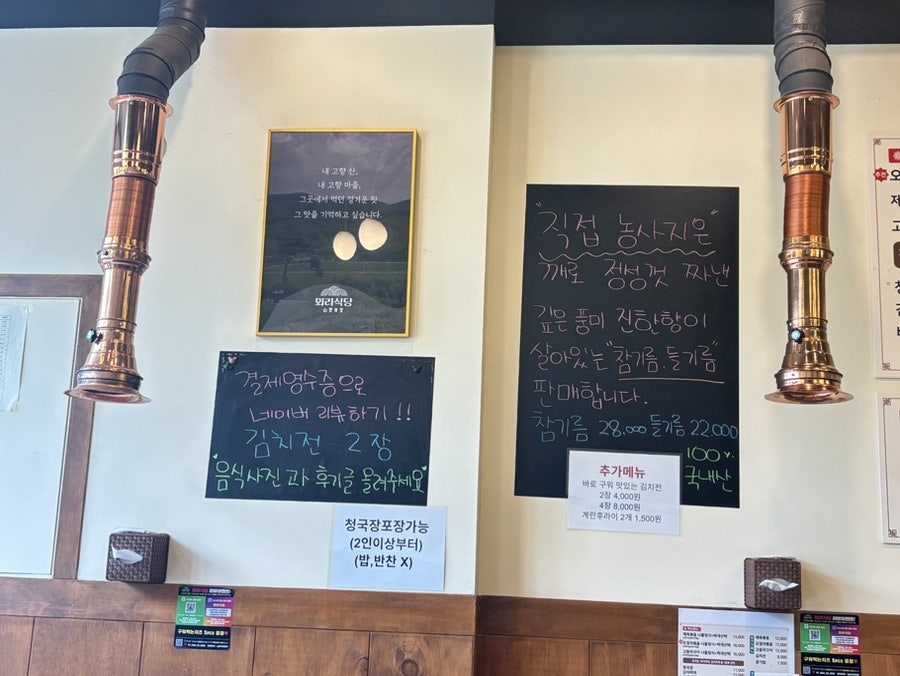 내 고향 산,
내 고향 마을,
그곳에서 먹던 정겨운 맛
그 맛을 기억하고 싶습니다.
외라식당
결제영수증으로
네이버 리뷰하기!!
김치전 2장
음식사진과 후기글 올려주세요
청국장포장가능
(2인이상부터)
(밥,반찬 X)
"직접 농사지은"
깨로 정성껏 짜낸
깊은 풍미 진한향이
살아있는 "참기름.들기름"
판매합니다.
참기름 28,000 들기름 22.000
100%
국내산
추가메뉴
바로 구워 맛있는 김치전
2장 4,000원
4장 8,000원
계란후라이 2개 1,500원
외라식당
구워먹는치즈 5pcs 증정
청국장